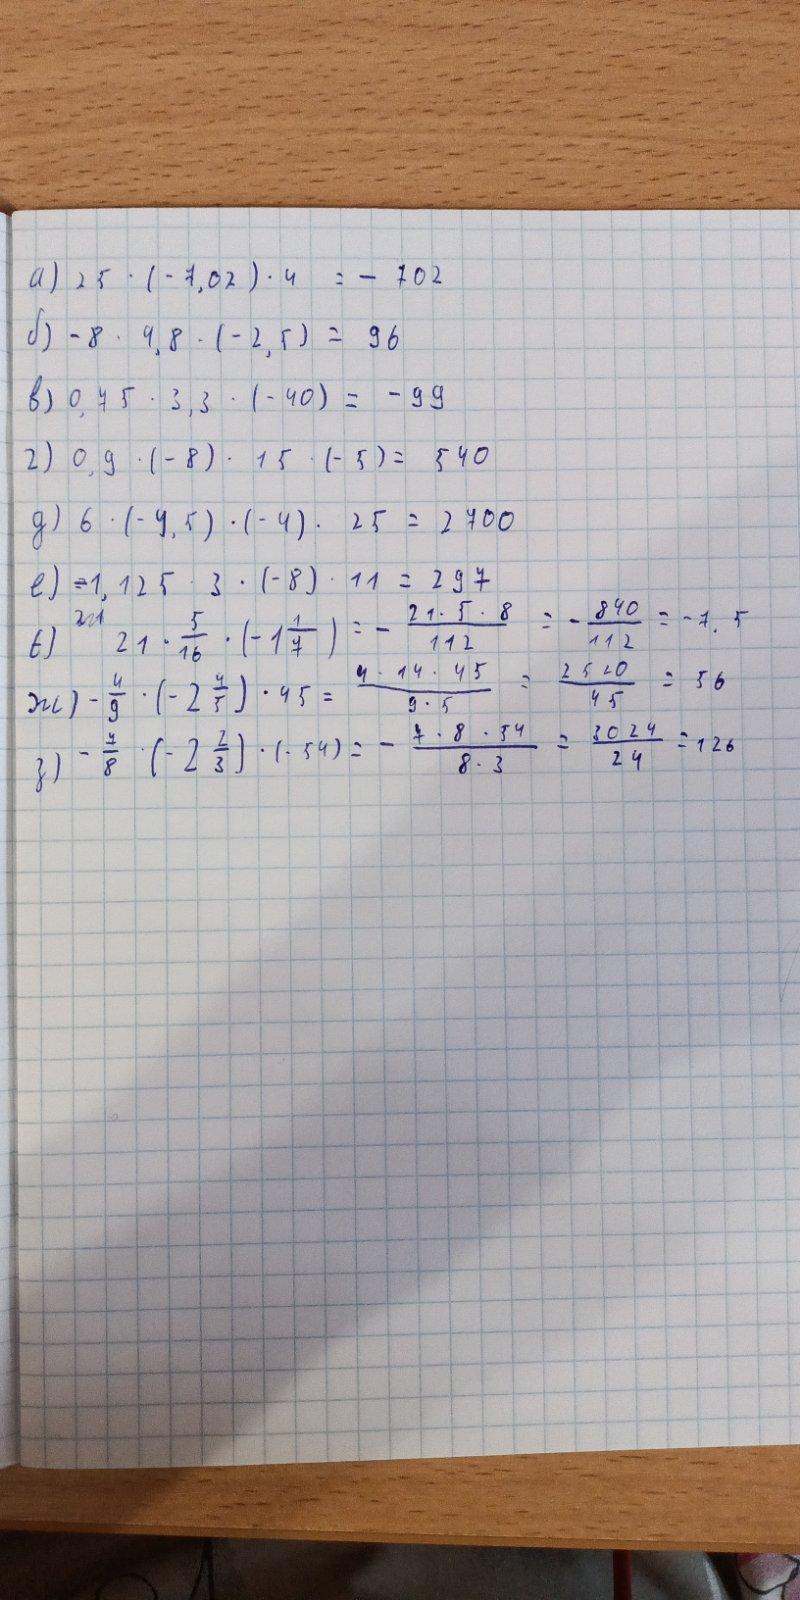 а) 25 · (-7,02) · 4 = - 702
б) -8 · 4,8 · (-2,5) = 96
в) 0,75 · 3,3 · (-40) = -99
г) 0,9 · (-8) · 15 · (-5) = 540
д) 6 · (-4,5) · (-4) · 25 = 2700
е) -1,125 · 3 · (-8) · 11 = 297
ё) 21 · 5/16 · (-1 1/7) = - 21·5·8/112 = - 840/112 = -7,5
ж) - 4/9 · (-2 4/5) · 45 = 4·14·45/9·5 = 2520/45 = 56
з) - 7/8 · (-2 2/3) · (-54) = - 7·8·54/8·3 = 3024/24 = 126